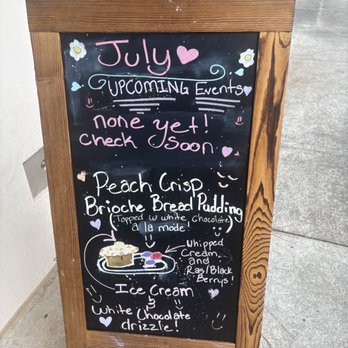 July
UPCOMING Events
none yet!
check Soon
Peach Crisp
Brioche Bread Pudding
(Topped w white chocolate)
a la mode!
Whipped
Cream
and
Ras/Black
Berrys!
Ice Cream
&
White Chocolate
drizzle!